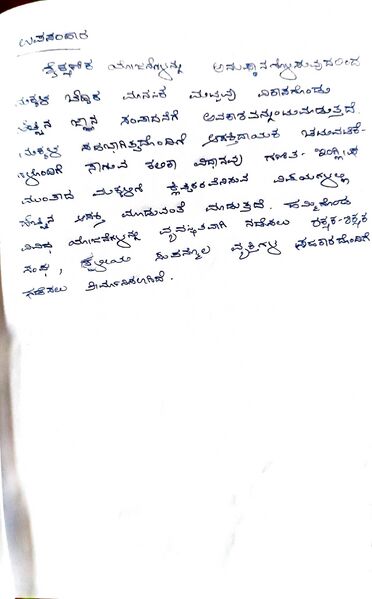 ಉಪಸಂಹಾರ
ಶೈಕ್ಷಣಿಕ ಯೋಜನೆಯನ್ನು ಅನುಷ್ಠಾನಗೊಳಿಸುವುದರಿಂದ
ಮಕ್ಕಳ ಬೌದ್ಧಿಕ ಮಾನಸಿಕ ಮಟ್ಟವು ವಿಕಾಸಗೊಂಡು
ಹೆಚ್ಚಿನ ಜ್ಞಾನ ಸಂಪಾದನೆಗೆ ಅವಕಾಶವನ್ನುಂಟುಮಾಡುತ್ತದೆ.
ಮಕ್ಕಳ ಸಹಭಾಗಿತ್ವದೊಂದಿಗೆ ಆಸಕ್ತಿದಾಯಕ ಚಟುವಟಿಕೆ-
ಗಳೊಂದಿಗೆ ಸಾಗುವ ಕಲಿಕಾ ವಿಧಾನವು ಗಣಿತ-ಇಂಗ್ಲೀಷ
ಮುಂತಾದ ಮಕ್ಕಳಿಗೆ ಕ್ಲಿಷ್ಟಕರವೆನಿಸುವ ವಿಷಯಗಳಲ್ಲಿ
ಹೆಚ್ಚಿನ ಆಸಕ್ತಿ ಮೂಡುವಂತೆ ಮಾಡುತ್ತದೆ. ಹಮ್ಮಿಕೊಂಡ
ವಿವಿಧ ಯೋಜನೆಗಳನ್ನು ವ್ಯವಸ್ಥಿತವಾಗಿ ನಡೆಸಲು ರಕ್ಷಕ-ಶಿಕ್ಷಕ
ಸಂಘ, ಸ್ಥಳೀಯ ಸಂಪನ್ಮೂಲ ವ್ಯಕ್ತಿಗಳ ಸಹಕಾರದೊಂದಿಗೆ
ನಡೆಸಲು ತೀರ್ಮಾನಿಸಲಾಗಿದೆ.